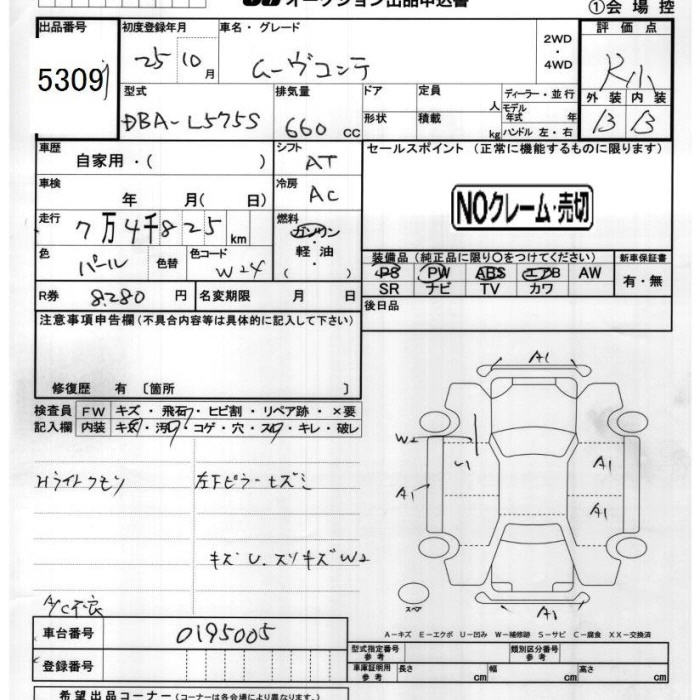 オークション出品申込書
①会場控
出品番号
5309
初度登録年月
25 10月
車名・グレード
ムーヴコンテ
2WD
・
4WD
評価点
外装 内装
B B
型式
DBA-L575S
排気量
660 cc
ドア
形状
定員 人
積載 kg
ディーラー・並行
モデル年式 年
ハンドル 左・右
車歴
自家用・( )
シフト
AT
車検
年 月( 日)
冷房
AC
走行
7万4千825 km
燃料
ガソリン
・
軽油
・
( )
色
パール
色替
色コード
W24
R券 8280 円
名変期限 月 日
セールスポイント (正常に機能するものに限ります)
NOクレーム・売切
装備品 (純正品に限り○をつけてください)
PS PW ABS エアB AW
SR ナビ TV カワ
新車保証書
有・無
後日品
注意事項申告欄 (不具合内容等は具体的に記入して下さい)
修復歴 有 〔箇所 〕
検査員記入欄
FW キズ・飛石・ヒビ割・リペア跡・×要
内装 キズ・汚れ・コゲ・穴・スレ・キレ・破レ
Hライトクモリ
左下ピラーヒズミ
キズU、スリキズW2
A/C不良
A1
W2
A1
A1
A1
A1
スペア
A-キズ E-エクボ U-凹み W-補修跡 S-サビ C-腐食 XX-交換済
車台番号
0195005
登録番号
型式指定番号 参考
類別区分番号 参考
車庫証明用 参考
長さ cm
幅 cm
高さ cm
希望出品コーナー (コーナーは各会場により異なります。)